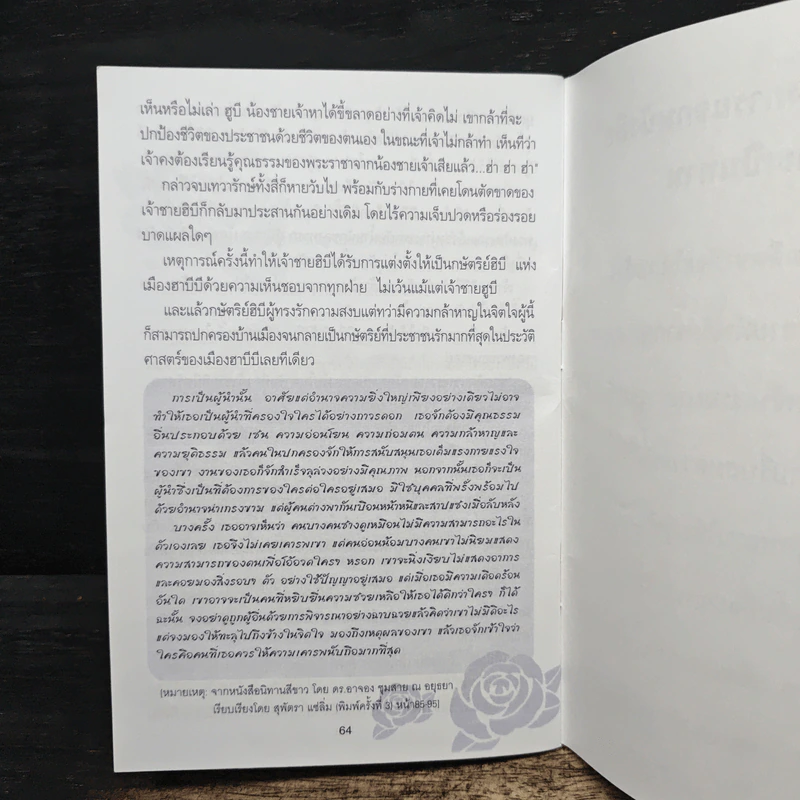 เห็นหรือไม่เล่า ฮูบี น้องชายเจ้าหาได้ขี้ขลาดอย่างที่เจ้าคิดไม่ เขากล้าที่จะ
ปกป้องชีวิตของประชาชนด้วยชีวิตของตนเอง ในขณะที่เจ้าไม่กล้าทำ เห็นทีว่า
เจ้าคงต้องเรียนรู้คุณธรรมของพระราชาจากน้องชายเจ้าเสียแล้ว...ฮ่า ฮ่า ฮ่า"
กล่าวจบเทวารักษ์ทั้งสี่ก็หายวับไป พร้อมกับร่างกายที่เคยโดนตัดขาดของ
เจ้าชายฮิบีก็กลับมาประสานกันอย่างเดิม โดยไร้ความเจ็บปวดหรือร่องรอย
บาดแผลใดๆ
เหตุการณ์ครั้งนี้ทำให้เจ้าชายฮิบีได้รับการแต่งตั้งให้เป็นกษัตริย์ฮิบี แห่ง
เมืองฮาบีบีด้วยความเห็นชอบจากทุกฝ่าย ไม่เว้นแม้แต่เจ้าชายฮูบี
และแล้วกษัตริย์ฮิบีผู้ทรงรักความสงบแต่ทว่ามีความกล้าหาญในจิตใจผู้นี้
ก็สามารถปกครองบ้านเมืองจนกลายเป็นกษัตริย์ที่ประชาชนรักมากที่สุดในประวัติ
ศาสตร์ของเมืองฮาบีบีเลยทีเดียว
การเป็นผู้นำนั้น อาศัยแต่อำนาจความยิ่งใหญ่เพียงอย่างเดียวไม่อาจ
ทำให้เธอเป็นผู้นำที่ครองใจใครได้อย่างถาวรดอก เธอจักต้องมีคุณธรรม
อื่นประกอบด้วย เช่น ความอ่อนโยน ความถ่อมตน ความกล้าหาญและ
ความยุติธรรม แล้วคนในปกครองจักให้การสนับสนุนเธอเต็มแรงกายแรงใจ
ของเขา งานของเธอก็จักสำเร็จลุล่วงอย่างมีคุณภาพ นอกจากนั้นเธอก็จะเป็น
ผู้นำซึ่งเป็นที่ต้องการของใครต่อใครอยู่เสมอ มิใช่บุคคลที่พรั่งพร้อมไป
ด้วยอำนาจน่าเกรงขาม แต่ผู้คนต่างพากันเบือนหน้าหนีและสาปแช่งเมื่อลับหลัง
บางครั้ง เธออาจเห็นว่า คนบางคนช่างดูเหมือนไม่มีความสามารถอะไรใน
ตัวเองเลย เธอจึงไม่เคยเคารพเขา แต่คนอ่อนน้อมบางคนเขาไม่นิยมแสดง
ความสามารถของตนเพื่อโอ้อวดใครๆ หรอก เขาจะนิ่งเงียบไม่แสดงอาการ
และคอยมองสิ่งรอบๆ ตัว อย่างใช้ปัญญาอยู่เสมอ แต่เมื่อเธอมีความเดือดร้อน
อันใด เขาอาจจะเป็นคนที่หยิบยื่นความช่วยเหลือให้เธอได้ดีกว่าใครๆ ก็ได้
ฉะนั้น จงอย่าดูถูกผู้อื่นด้วยการพิจารณาอย่างฉาบฉวยแล้วคิดว่าเขาไม่มีดีอะไร
แต่จงมองให้ทะลุไปถึงข้างในจิตใจ มองถึงเหตุผลของเขา แล้วเธอจักเข้าใจว่า
ใครคือคนที่เธอควรให้ความเคารพนับถือมากที่สุด
[หมายเหตุ: จากหนังสือนิทานสีขาว โดย ดร.อาจอง ชุมสาย ณ อยุธยา
เรียบเรียงโดย สุพัตรา แซ่ลิ่ม (พิมพ์ครั้งที่ 3) หน้า85-95]
64